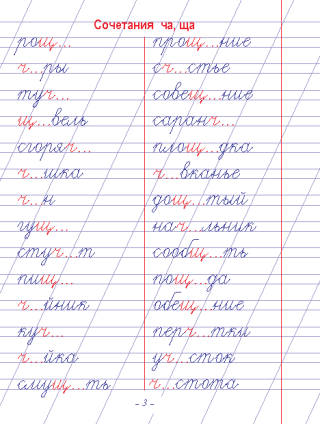 Сочетания ча, ща
рощ...
ч...ры
туч...
щ...вель
сгоряч...
ч...шка
ч...н
гущ...
стуч...т
пищ...
ч...йник
куч...
ч...йка
смущ...ть
прощ...ние
сч...стье
совещ...ние
саранч...
площ...дка
ч...вканье
дощ...тый
нач...льник
сообщ...ть
пощ...да
обещ...ние
перч...тки
уч...сток
ч...стота
- 3 -